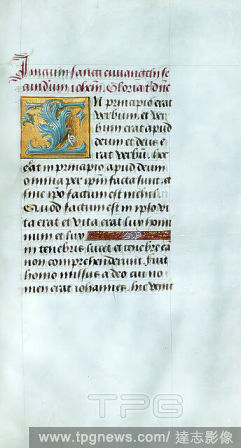 Inicium sancti euvangelii se
cundum iohem. Gloria t dne
In principio erat
verbum. et ver
bum erat apud
deum et deus e
rat verbū. hoc
erat in principio apud deum
omnia per ipm facta sunt. et
sine ipo factum est nichil.
Quod factum est in ipso vi
ta erat et vita erat lux homi
num et lux
in tenebris lucet et tenebre ea
non comprehenderunt. fuit
homo missus a deo cui no
men erat iohannes. hic venit
TPG
www.tpgnews.com/達志影像